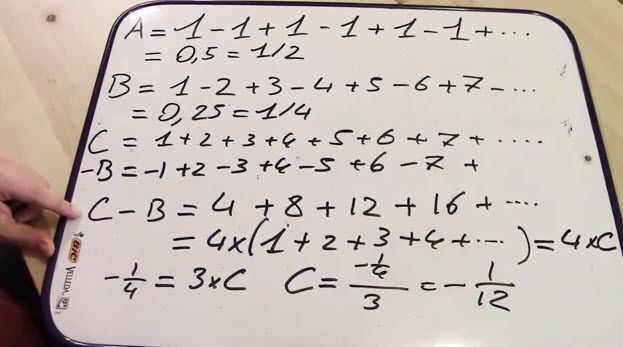 A = 1 - 1 + 1 - 1 + 1 - 1 + ...
= 0,5 = 1/2
B = 1 - 2 + 3 - 4 + 5 - 6 + 7 - ...
= 0,25 = 1/4
C = 1 + 2 + 3 + 4 + 5 + 6 + 7 + ....
-B = -1 + 2 - 3 + 4 - 5 + 6 - 7 +
C - B = 4 + 8 + 12 + 16 + ....
= 4 x (1 + 2 + 3 + 4 + ...) = 4 x C
-1/4 = 3 x C C = (-1/4)/3 = -1/12
BIC VELLEDA